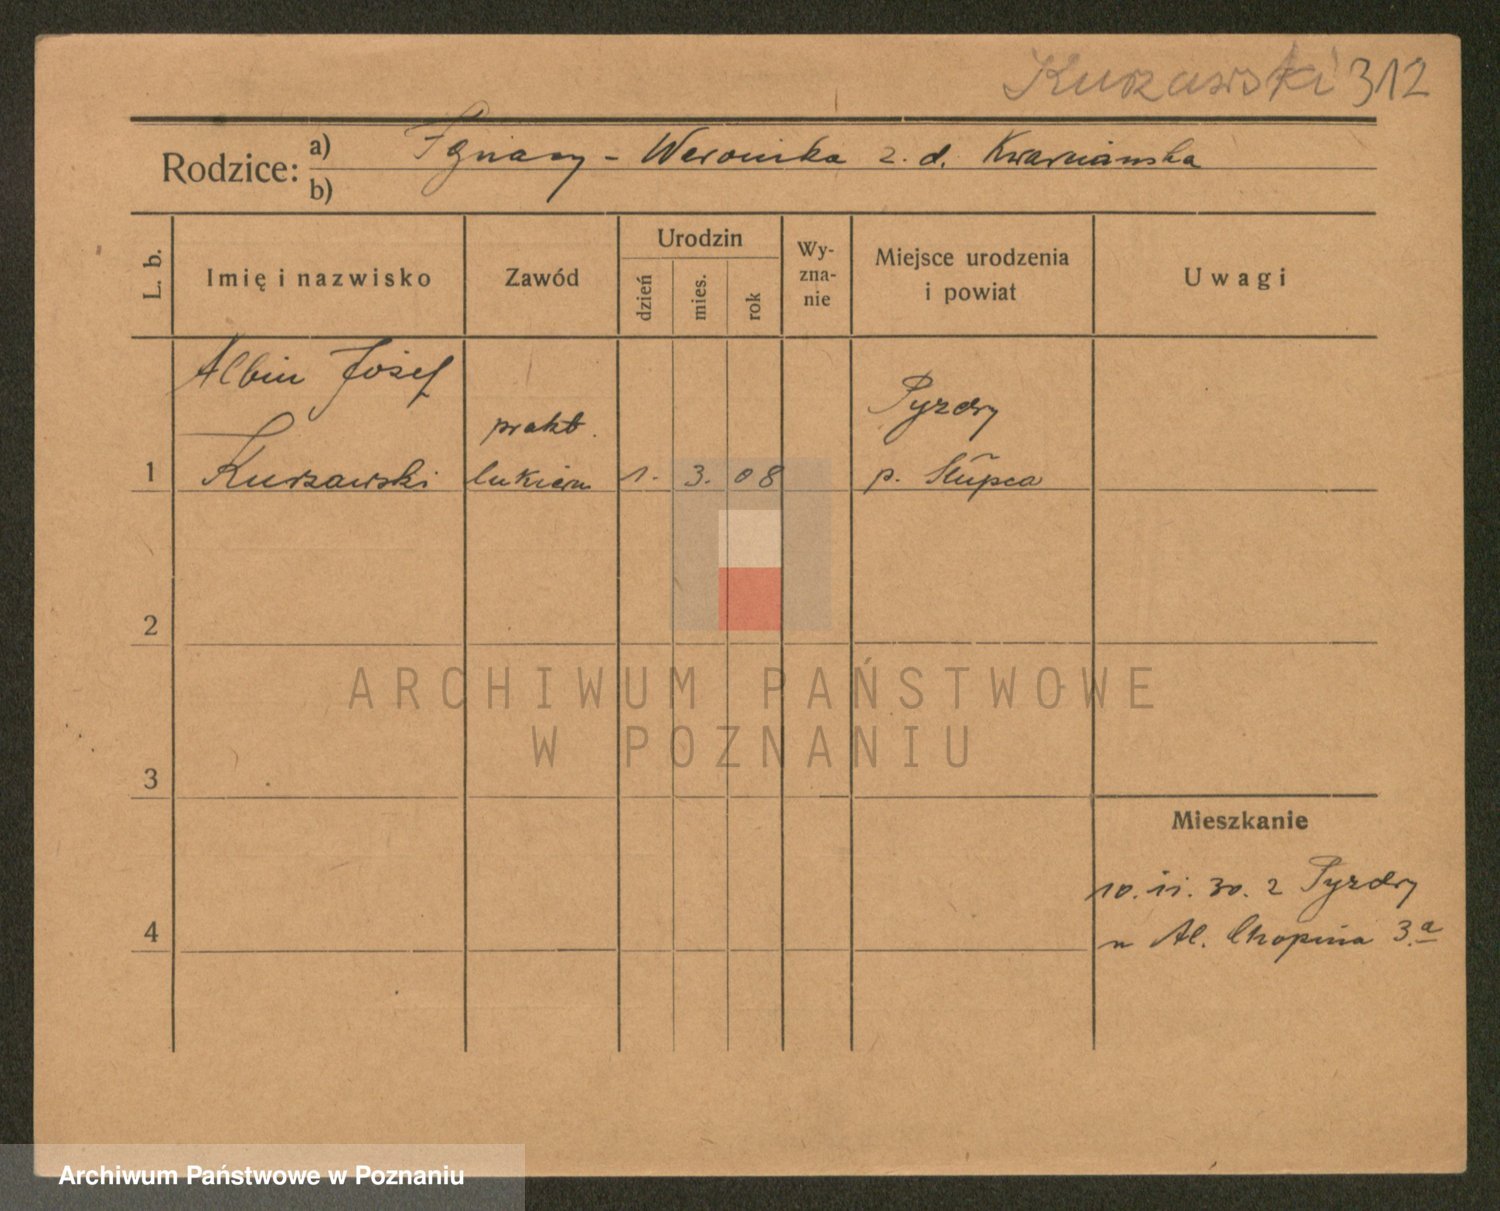 Kurzawski 312
Rodzice: a) Ignacy - Weronika z. d. Kwarciańska
b)
L. b.
Imię i nazwisko
Zawód
Urodzin
dzień
mies.
rok
Wy-
zna-
nie
Miejsce urodzenia
i powiat
Uwagi
Albin Józef
Kurzawski
prakt.
cukiern
1. 3. 08
Pyzdry
p. Słupca
1
2
3
4
Mieszkanie
10. 11. 30. z Pyzdry
n Al. Chopina 3.a
ARCHIWUM PAŃSTWOWE
W POZNANIU
Archiwum Państwowe w Poznaniu